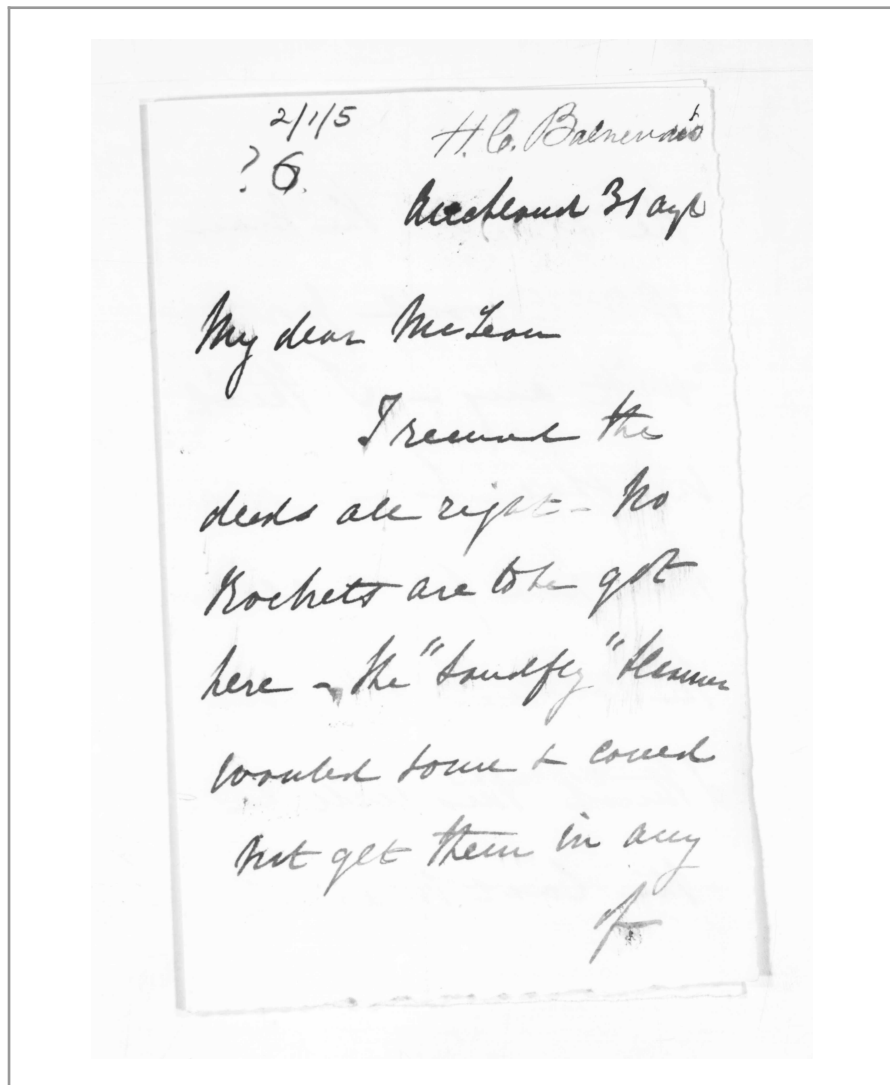 2/1/5
? 6.
H. C. Balneavis
Auckland 31 augt
My dear McLean
I received the
deeds all right - No
Rockets are to be got
here - the "Sandfly" Steamer
wanted some & could
not get them in any
of